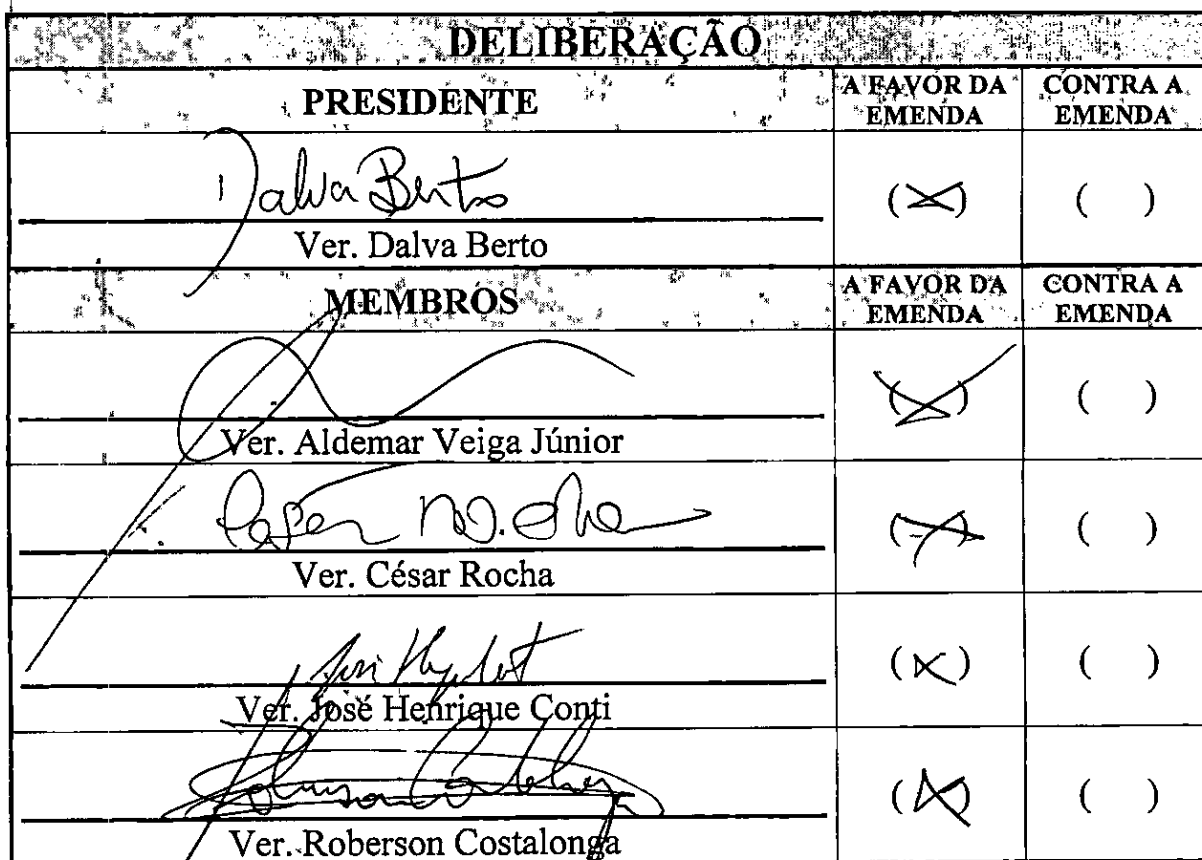 DELIBERAÇÃO
PRESIDENTE
A FAVOR DA EMENDA
CONTRA A EMENDA
Dalva Berto
(X) ( )
Ver. Dalva Berto
MEMBROS
A FAVOR DA EMENDA
CONTRA A EMENDA
(X) ( )
Ver. Aldemar Veiga Júnior
(X) ( )
Ver. César Rocha
(X) ( )
Ver. José Henrique Conti
(X) ( )
Ver. Roberson Costalonga